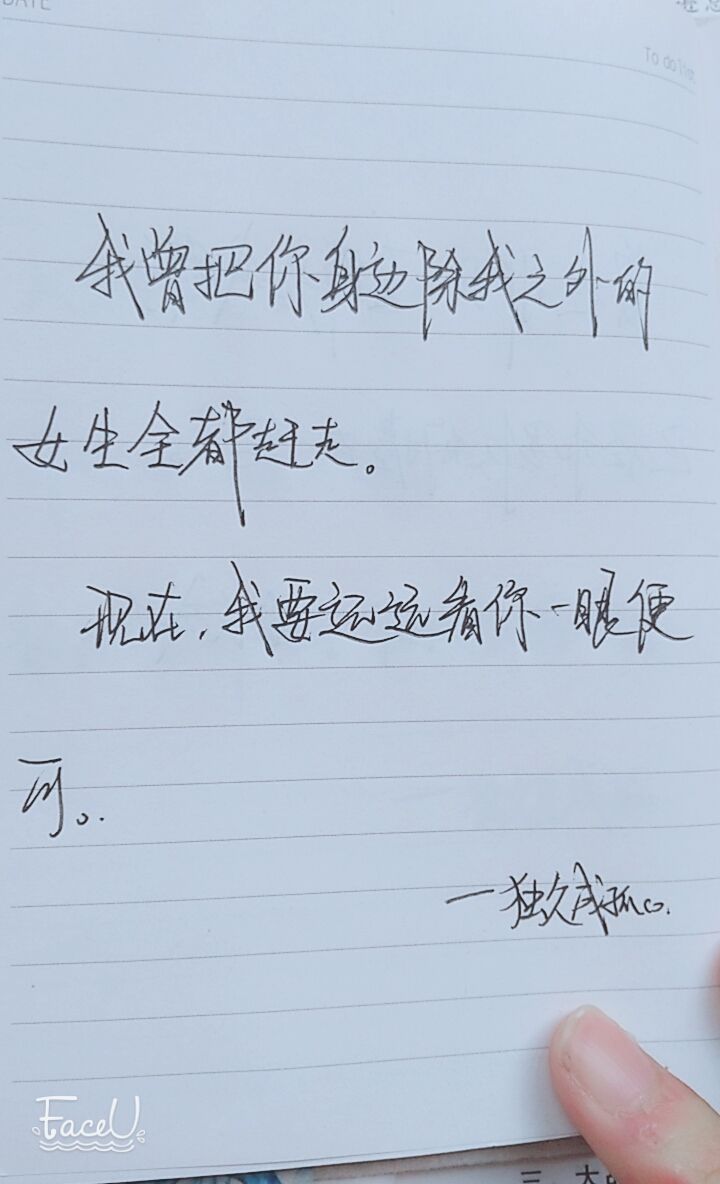 DATE
To do list
我曾把你身边除我之外的
女生全都赶走。
现在,我要远远看你一眼便
可。
一独久成孤
FaceU
三、大